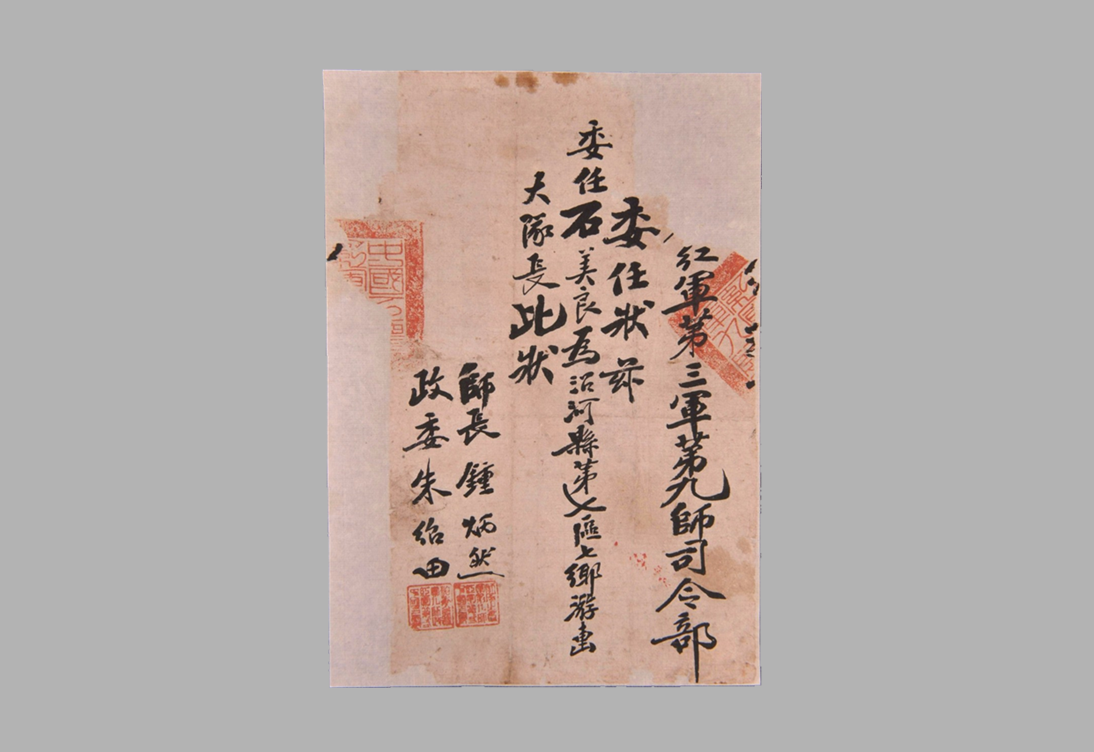 红軍第三軍第九師司令部
委任狀 兹
委任石美良為沿河縣第七區七鄉游击
大隊長此狀
師長 鍾炳然
政委 朱绍田
中國